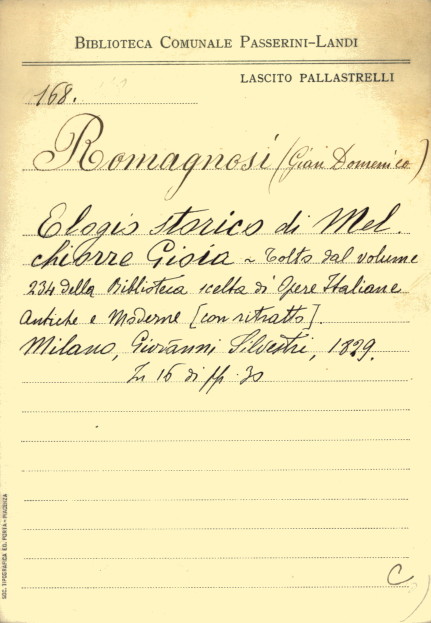 BIBLIOTECA COMUNALE PASSERINI-LANDI
LASCITO PALLASTRELLI
168.
Romagnosi (Gian Domenico)
Elogio storico di Mel.
chiorre Gioia ~ Tolto dal volume
234 della Biblioteca scelta di Opere Italiane
Antiche e Moderne [con ritratto].
Milano, Giovanni Silvestri, 1829.
In 16 di pp. 30
C
SOC. TIPOGRAFICA ED. PORTA - PIACENZA